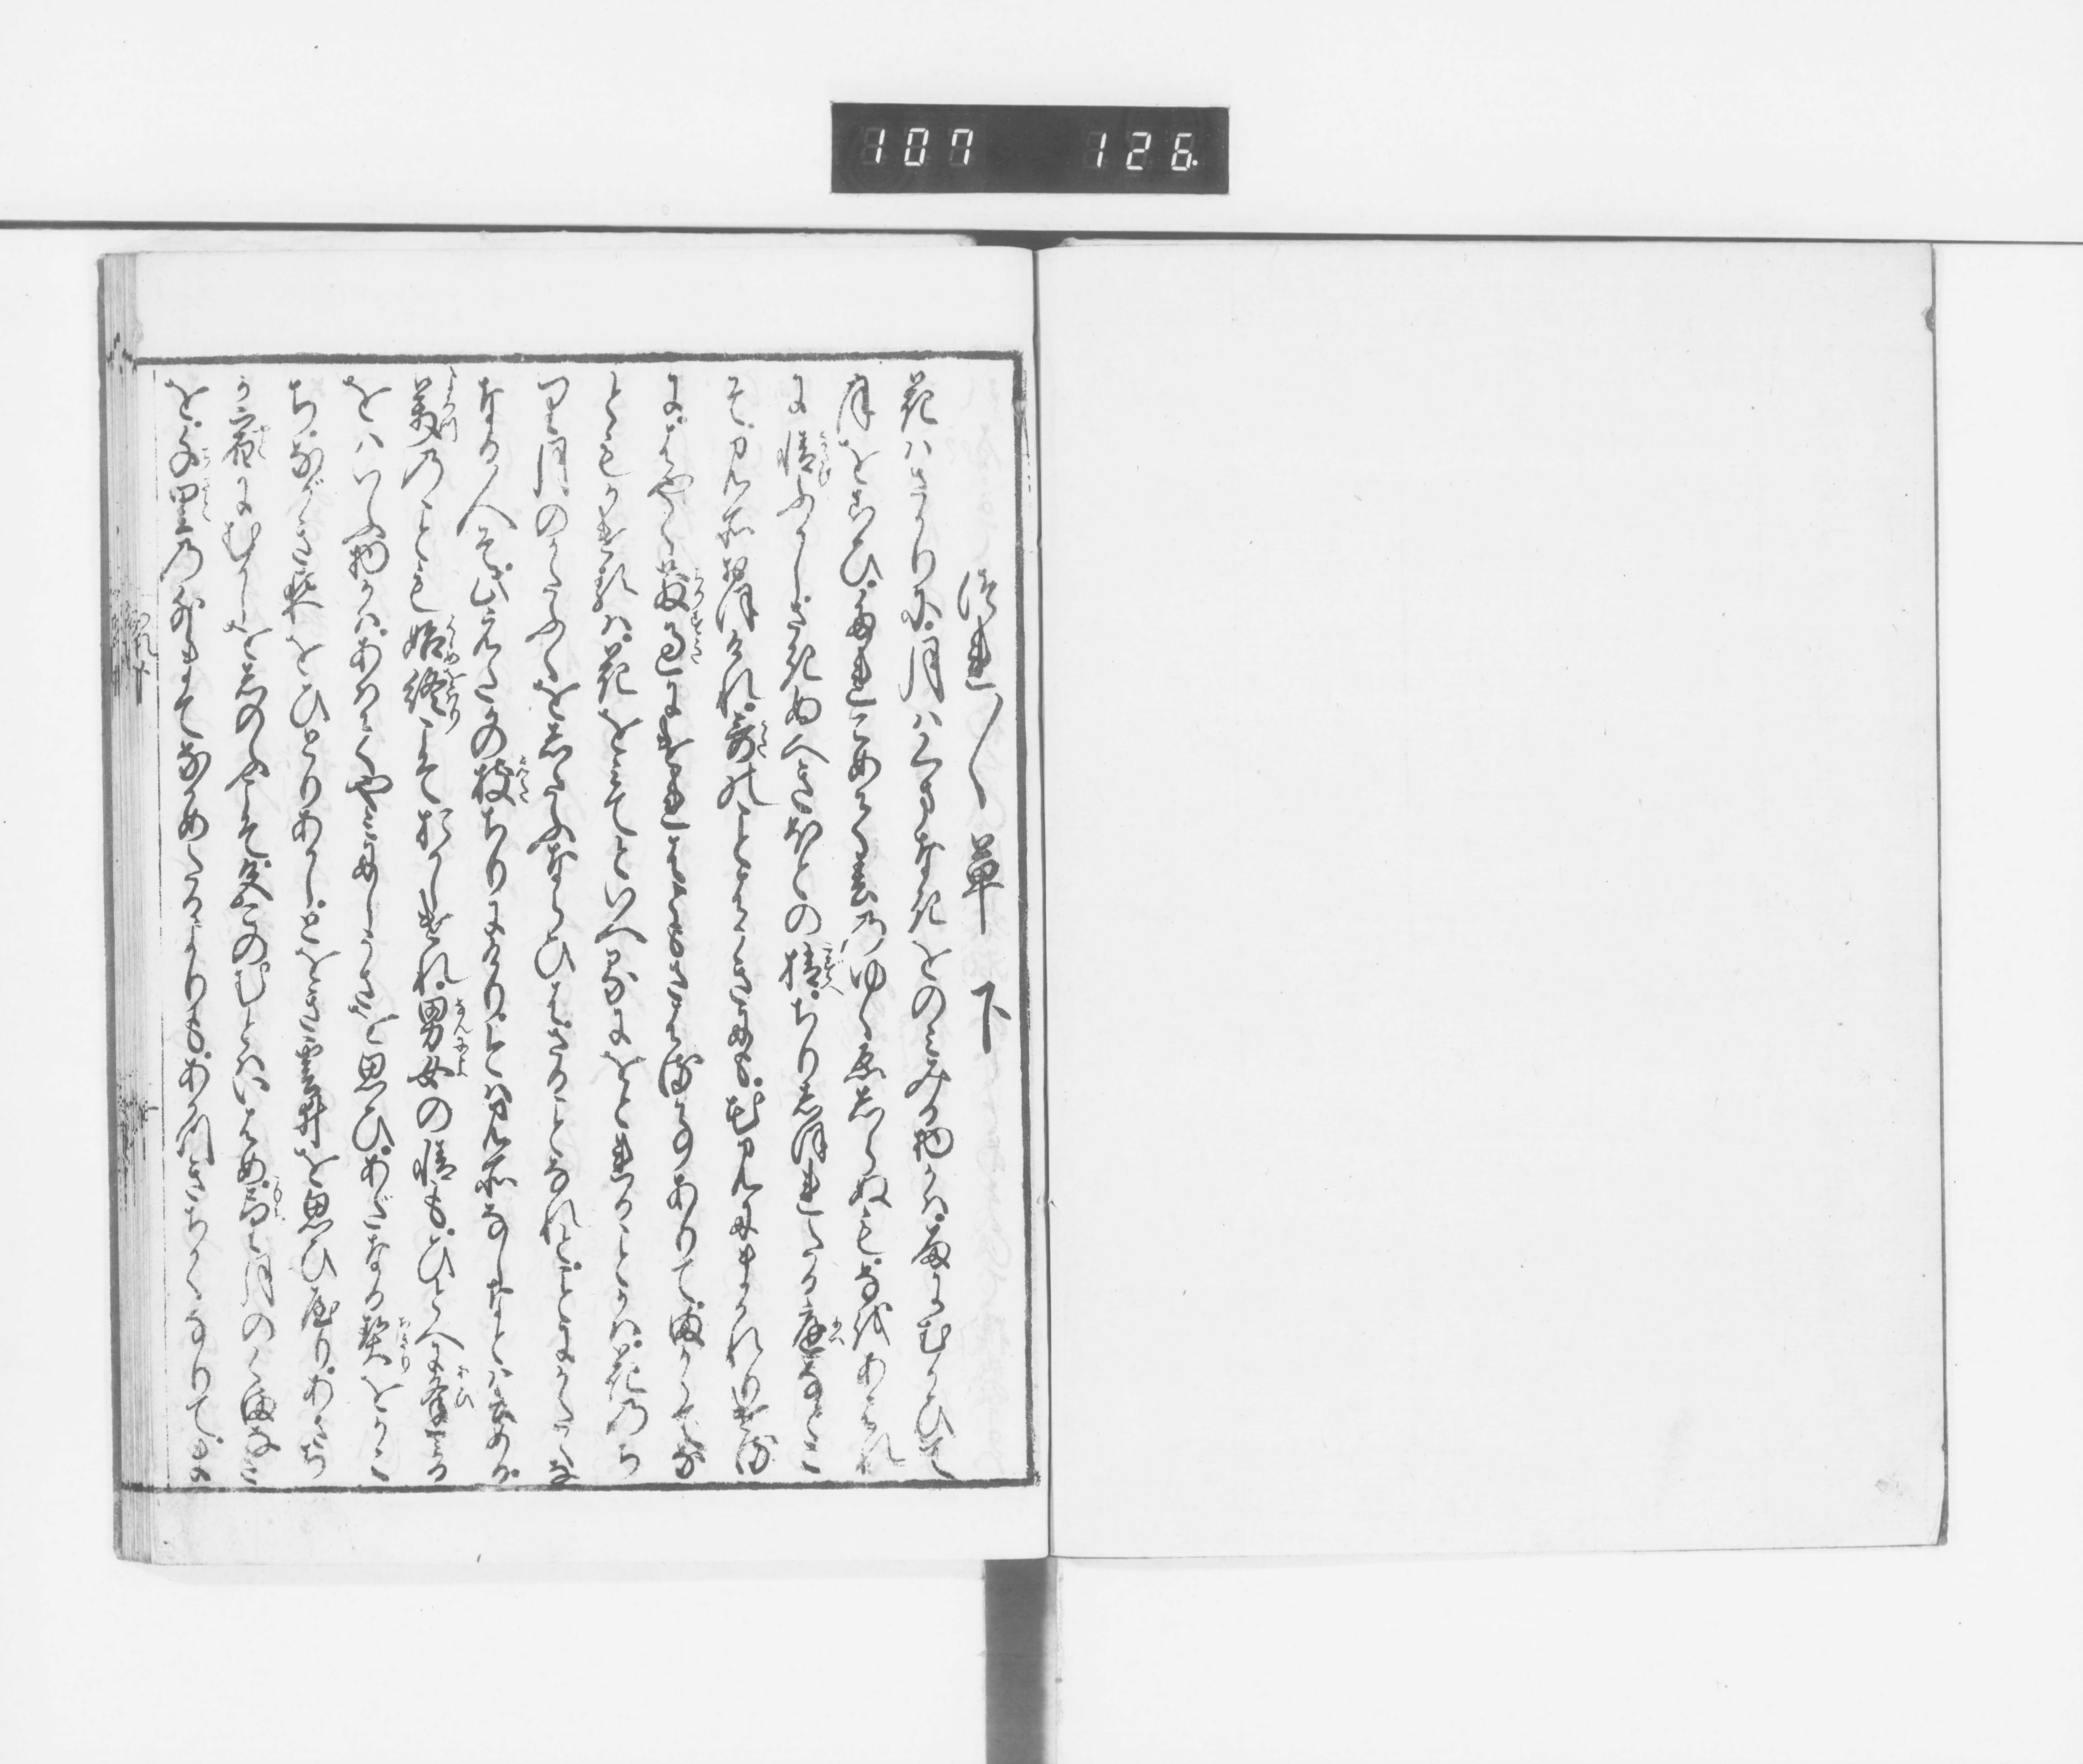 107 126.
徒然〳〵草 下
花ハさかりに月ハくまなきをのみみる物かハ雨にむかひて
月をこひたれこめて春のゆくゑしらぬも猶あはれ
に情ふかしさきぬへきほとの梢ちりしほれたる庭なとこ
そ見所おほけれ哥のことはかきにも花見にまかれりける
にはやく散過にけれはともさはる事ありてまからてな
ともかけるハ花をみてといへるにをとれることかハ花のち
り月のかたふくをしたふならひハさることなれとことにかたくな
なる人そ此えたかの枝ちりにけり今ハ見所なしなとハいふめる
萬のことも始終こそおかしけれ男女の情もひとへに逢みる
をハいふ物かハあはてやみにしうさを思ひあたなる契をかこ
ちなかき夜をひとりあかしとをき雲井を思ひ屋りあさち
か宿にむかしをしのふこそ色このむとハいはめ望月のくまなき
を千里の外まてなかめたるよりもあか月ちかくなりてま
つれ下